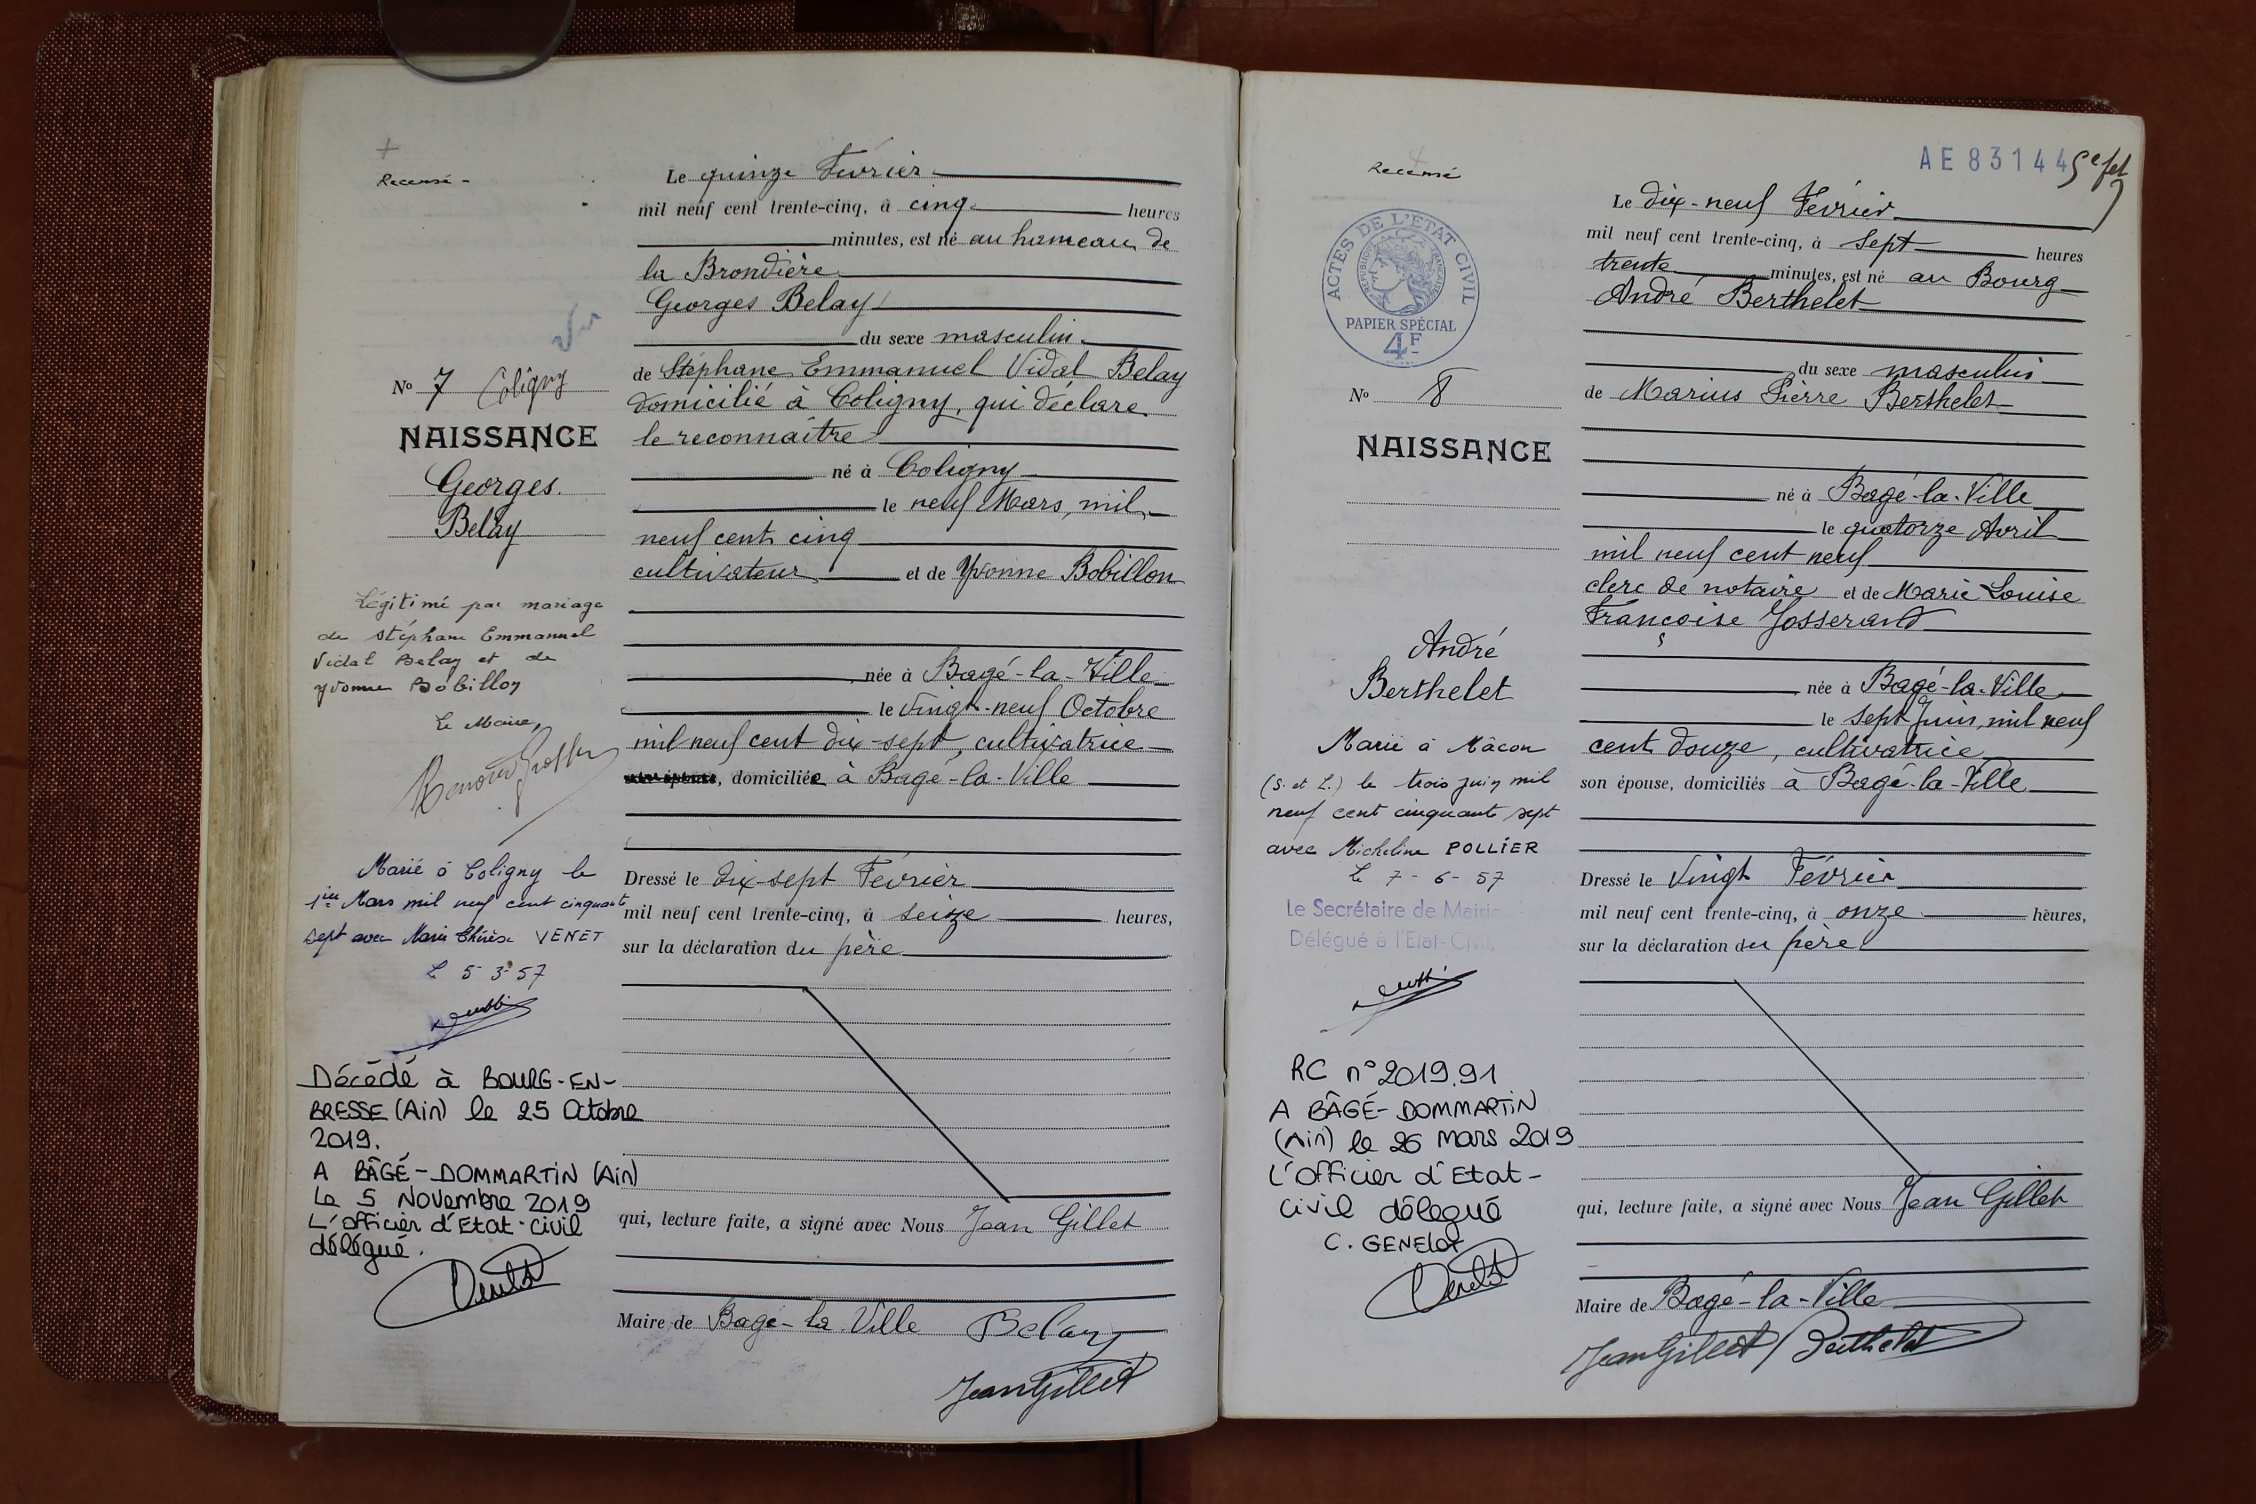 Recensé -
Le quinze Février
mil neuf cent trente-cinq, à cinq heures
minutes, est né au hameau de
la Brondière
Georges Belay
du sexe masculin
de Stéphane Emmanuel Vidal Belay
domicilié à Coligny, qui déclare
le reconnaître
né à Coligny
le neuf Mars, mil
neuf cent cinq
cultivateur et de Yvonne Bobillon
née à Bagé-la-Ville
le Vingt-neuf Octobre
mil neuf cent dix-sept, cultivatrice
, domiciliée à Bagé-la-Ville
Dressé le dix-sept Février
mil neuf cent trente-cinq, à seize heures,
sur la déclaration du père
qui, lecture faite, a signé avec Nous Jean Gillet
Maire de Bagé-la Ville Belay
Jean Gillet
No 7 Coligny
NAISSANCE
Georges
Belay
Légitimé par mariage
de Stéphane Emmanuel
Vidal Belay et de
Yvonne Bobillon
Le Maire,
Marié à Coligny le
1ier Mars mil neuf cent cinquante
sept avec Marie Thérèse VENET
Le 5-3-57
Décédé à BOURG-EN-
BRESSE (Ain) le 25 Octobre
2019.
A BÂGÉ-DOMMARTIN (Ain)
Le 5 Novembre 2019
L'officier d'Etat-civil
délégué.
AE 83144
Recensé
ACTES DE L'ETAT CIVIL
REPUBLIQUE FRANÇAISE
PAPIER SPÉCIAL
4F
Le dix-neuf Février
mil neuf cent trente-cinq, à sept heures
trente minutes, est né au Bourg
André Berthelet
du sexe masculin
de Marius Pierre Berthelet
né à Bagé-la-Ville
le quatorze Avril
mil neuf cent neuf
clerc de notaire et de Marie Louise
Françoise Josserand
née à Bagé-la-Ville
le sept Juin, mil neuf
cent douze, cultivatrice
son épouse, domiciliés à Bagé-la-Ville
Dressé le Vingt Février
mil neuf cent trente-cinq, à onze heures,
sur la déclaration du père
qui, lecture faite, a signé avec Nous Jean Gillet
Maire de Bagé-la-Ville
Jean Gillet Berthelet
No 8
NAISSANCE
André
Berthelet
Marié à Mâcon
(S. et L.) le trois juin mil
neuf cent cinquante sept
avec Micheline POLLIER
Le 7-6-57
Le Secrétaire de Mairie
Délégué à l'Etat-Civil,
RC n° 2019.91
A BÂGÉ-DOMMARTIN
(Ain) le 26 mars 2019
L'officier d'Etat-
civil délégué
C. GENELOT